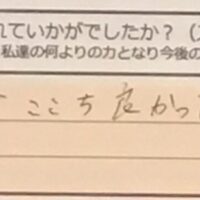 れていかがでしたか？（
私達の何よりの力となり今後の
ここち良かっ